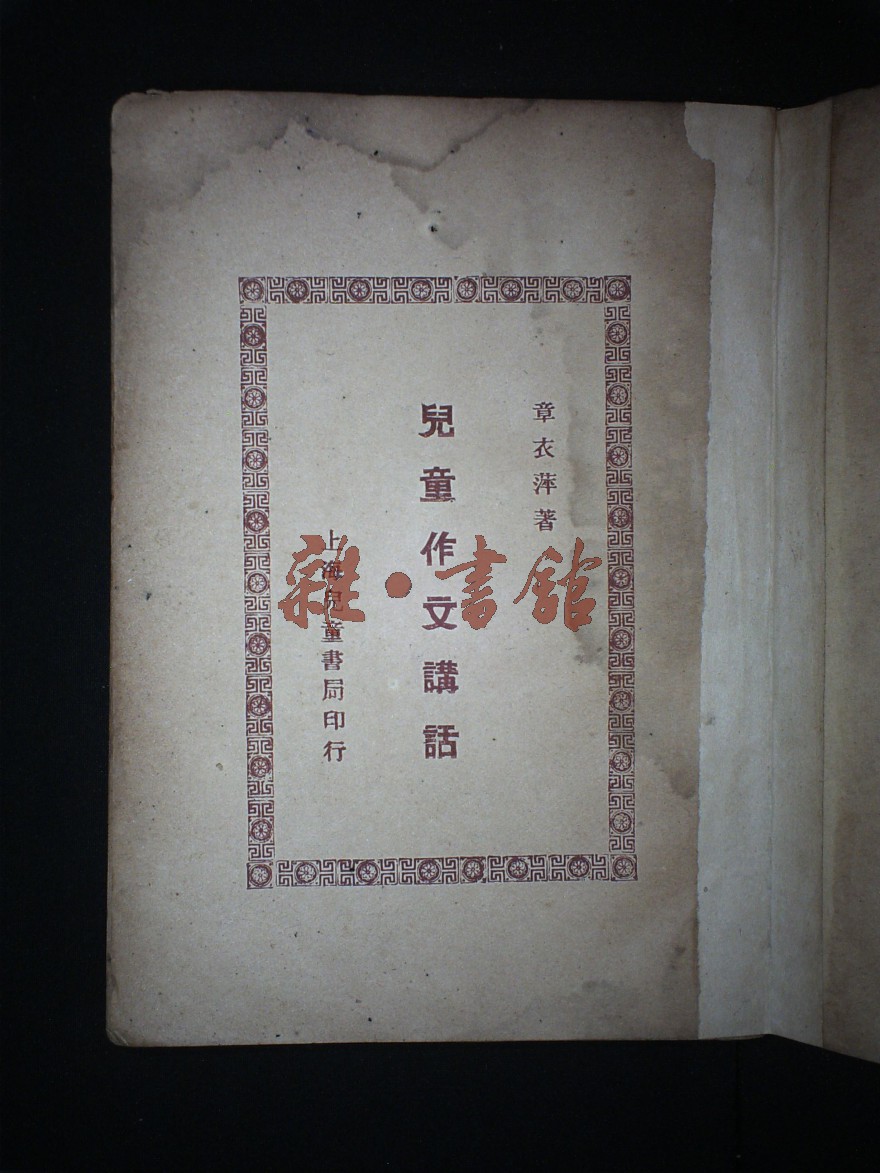 章衣萍著
兒童作文講話
上海兒童書局印行
雜·書館